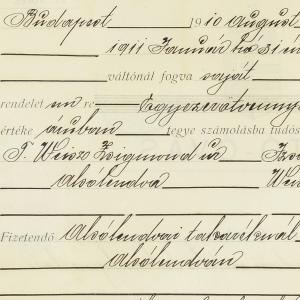 Budapest 1910 August
1911 Január hó 31 i
váltónál fogva saját
rendelet re Egyezerötven
értéke áruban tegye számolásba tudós
T. Weisz Zsigmond úr
Alsólendva Wein
Fizetendő Alsólendvai takarékná
Alsólendván